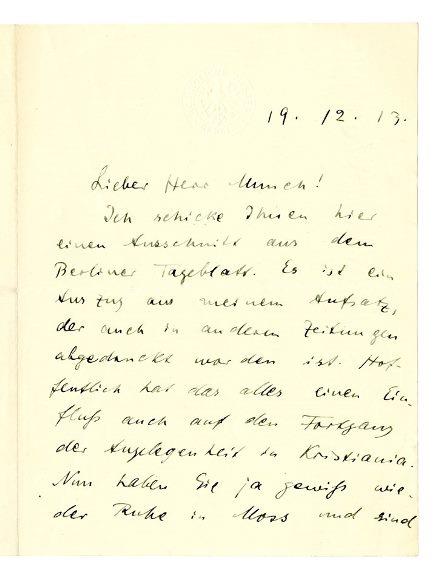 19. 12. 13.
Lieber Herr Munch!
Ich schicke Ihnen hier
einen Ausschnitt aus dem
Berliner Tageblatt. Es ist ein
Auszug aus meinem Aufsatz,
der auch in anderen Zeitungen
abgedruckt worden ist. Hof-
fentlich hat das alles einen Ein-
fluß auch auf den Fortgang
der Angelegenheit in Kristiania.
Nun haben Sie ja gewiß wie-
der Ruhe in Moss und sind